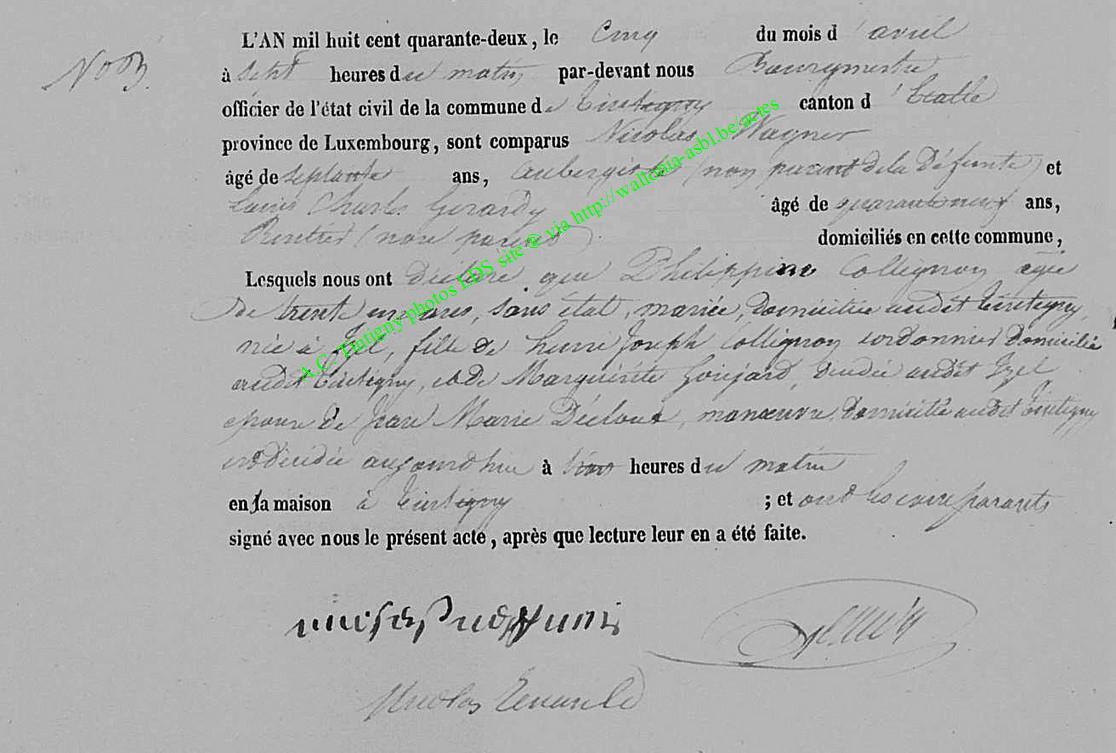 N° 13.
L'AN mil huit cent quarante-deux, le Cinq du mois d'avril
à sept heures du matin, par-devant nous Bourgmestre
officier de l'état civil de la commune de Tintigny canton d'Etalle
province de Luxembourg, sont comparus Nicolas Wagner
âgé de septante ans, aubergiste (non parent de la Défunte) et
Louis Charles Gerardy âgé de quarante neuf ans,
Rentier (non parent) domiciliés en cette commune,
Lesquels nous ont Déclaré que Philippine Collignon agée
de trente un ans, sans état, mariée, Domiciliée audit Tintigny,
née à Izel, fille de Joseph Collignon cordonnier Domicilié
audit Tintigny, et de Marguerite décédée audit Izel
epouse de Jean Marie manœuvre Domicilié audit Tintigny
est décédée aujourdhui à heures du matin
en sa maison à Tintigny ; et ont les comparants
signé avec nous le présent acte, après que lecture leur en a été faite.
Nicolas
A.C. Tintigny photos LDS site © via http://wallonia-asbl.be/actes